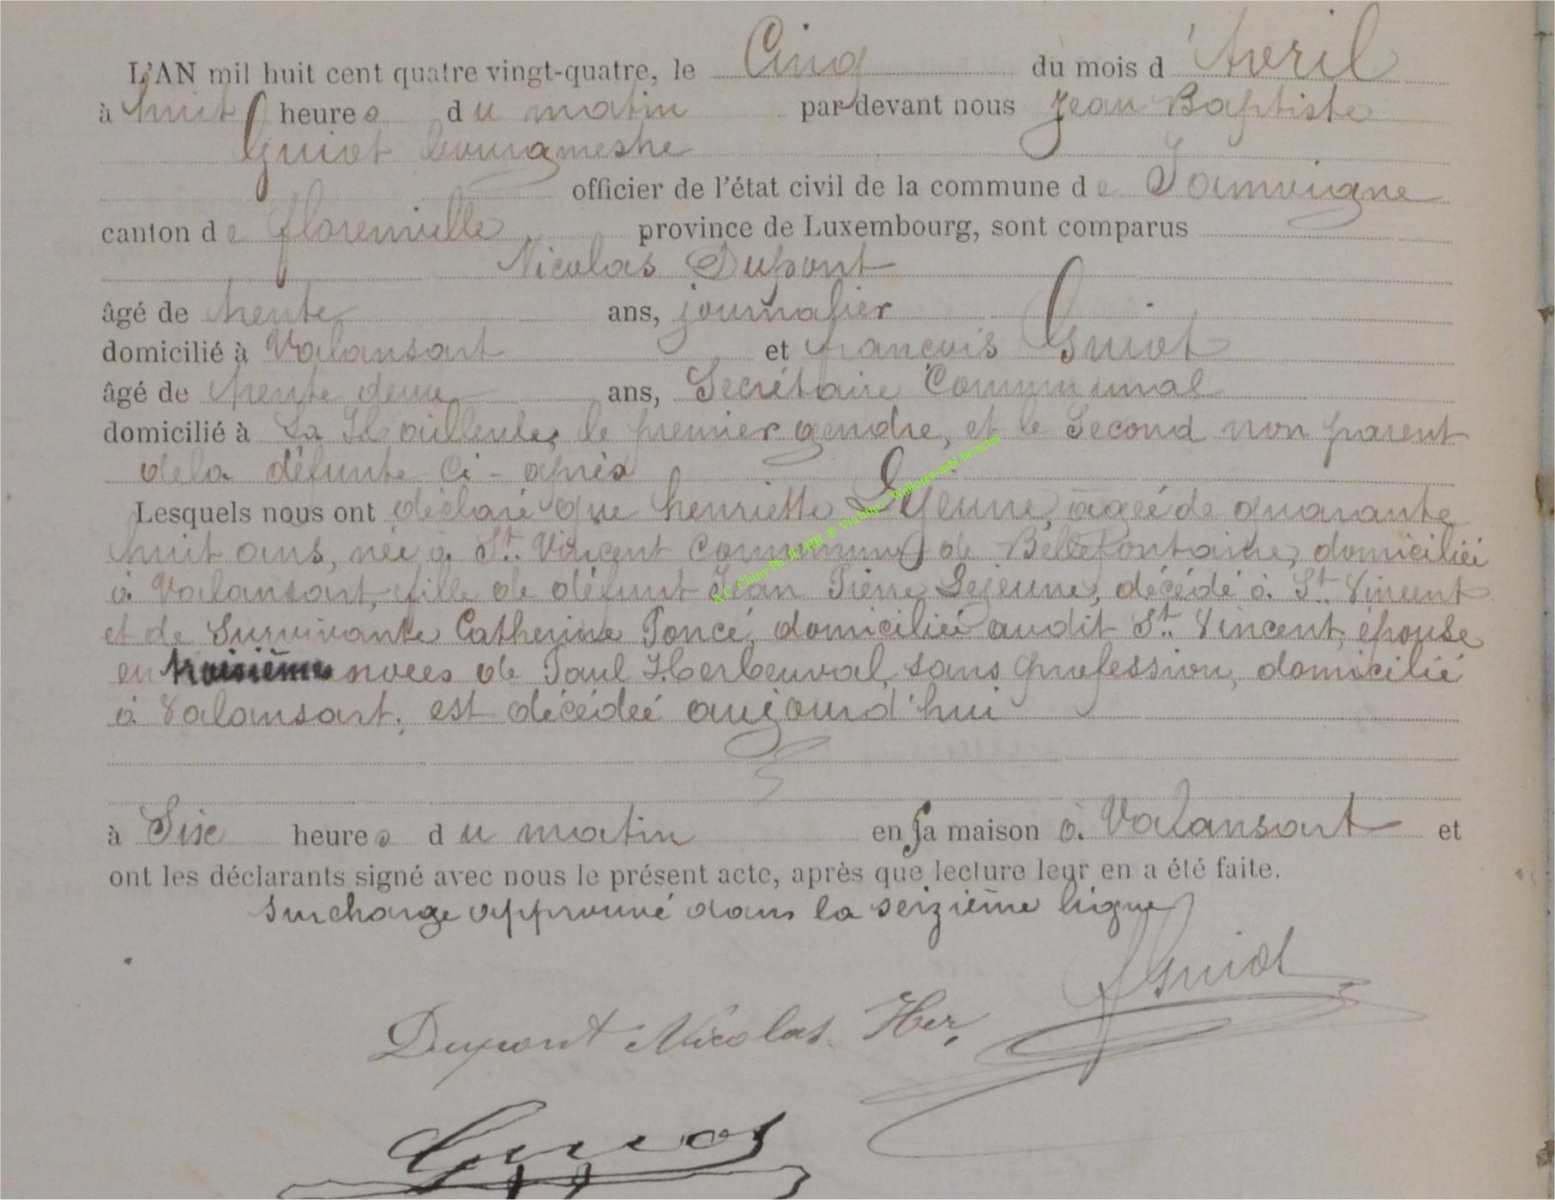 L'AN mil huit cent quatre vingt-quatre, le Cinq du mois d'Avril
à huit heures du matin par devant nous Jean Baptiste
Guiot bourgmestre
officier de l'état civil de la commune de Jamoigne
canton de florenville province de Luxembourg, sont comparus
Nicolas Dupont
âgé de trente ans, journalier
domicilié à Valansart et françois Guiot
âgé de trente deux ans, Secrétaire Communal
domicilié à La Hailleule, le premier gendre, et le Second non parent
de la défunte ci-après
Lesquels nous ont déclaré que henriette Lejeune, agée de quarante
huit ans, née à St. Vincent commune de Bellefontaine, domiciliée
à Valansart, fille de défunt Jean Pierre Lejeune, décédé à St. Vincent
et de Survivante Catherine Poncé, domiciliée audit St. Vincent, épouse
en troisième noces de Paul Herbeuval, sans profession, domicilié
à Valansart, est décédée aujourd'hui
à Six heures du matin en Sa maison à Valansart et
ont les déclarants signé avec nous le présent acte, après que lecture leur en a été faite.
Surcharge approuvé dans la seizième ligne
fGuiot
Dupont Nicolas Her,
Guiot